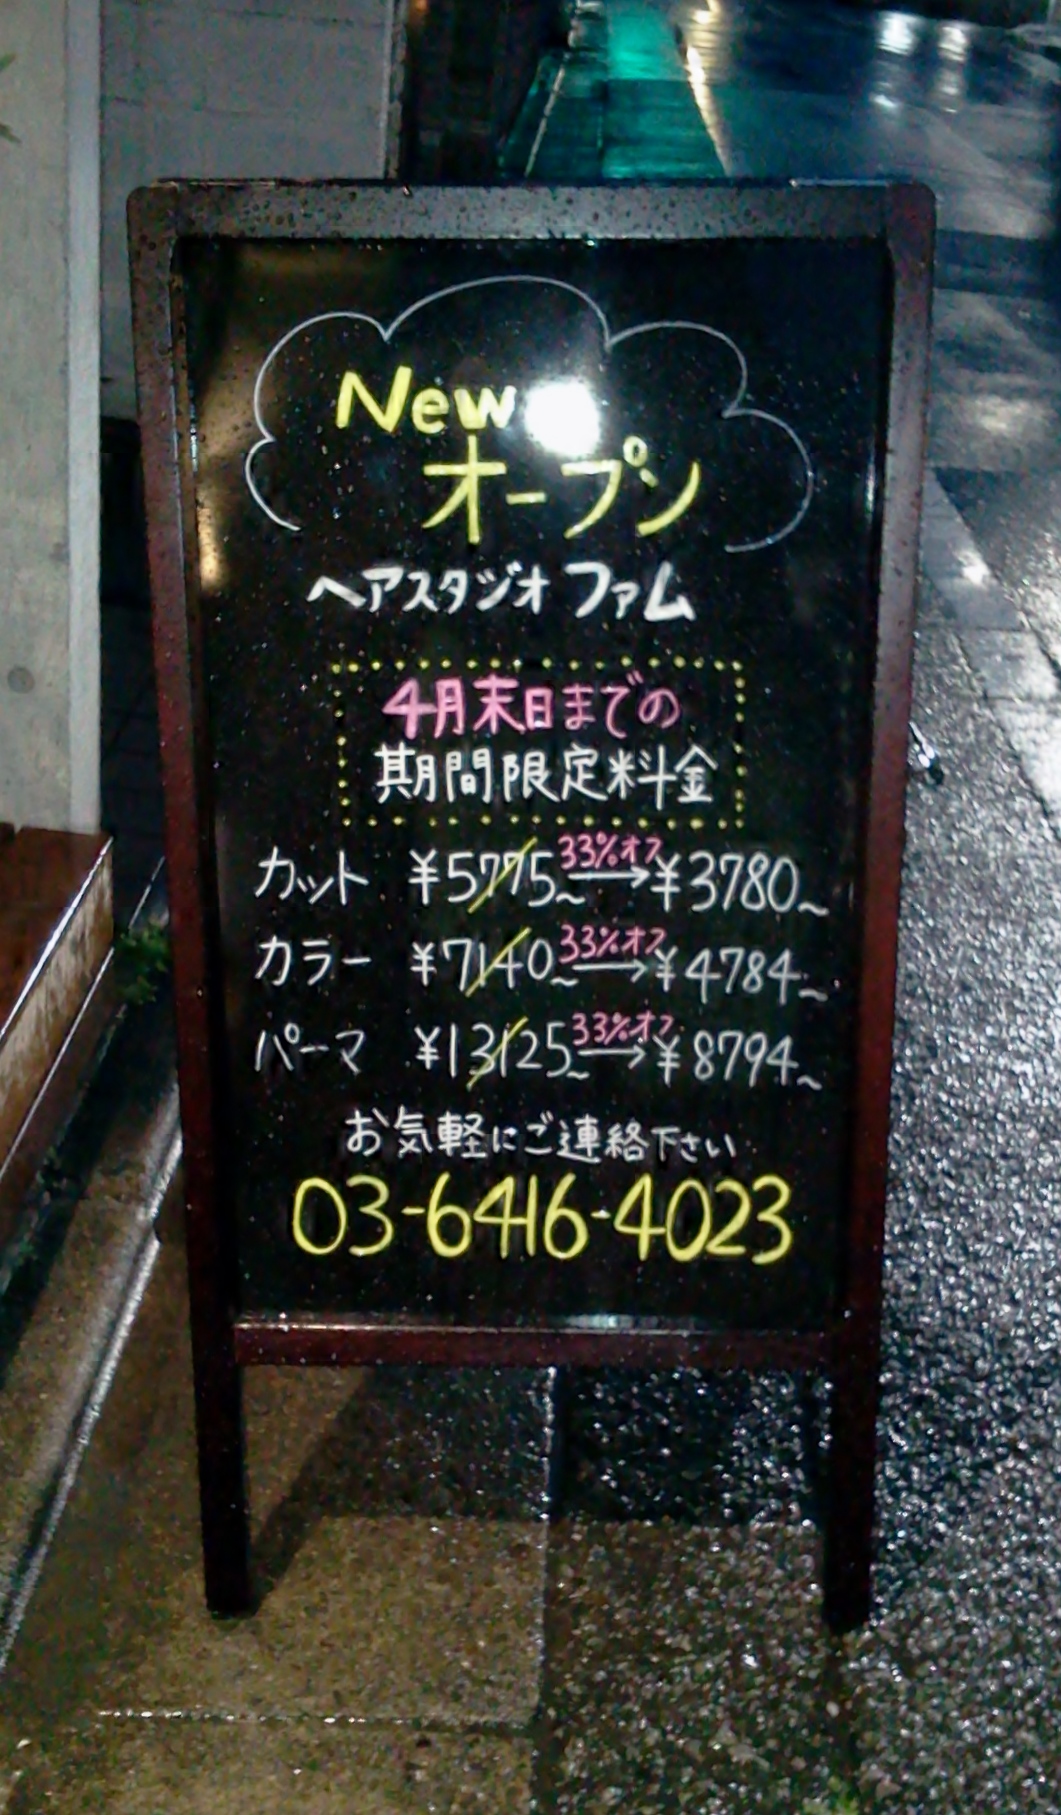 New
オープン
ヘアスタジオ ファム
4月末日までの
期間限定料金
カット ¥5775~ 33%オフ→ ¥3780~
カラー ¥7140~ 33%オフ→ ¥4784~
パーマ ¥13125~ 33%オフ→ ¥8794~
お気軽にご連絡下さい
03-6416-4023